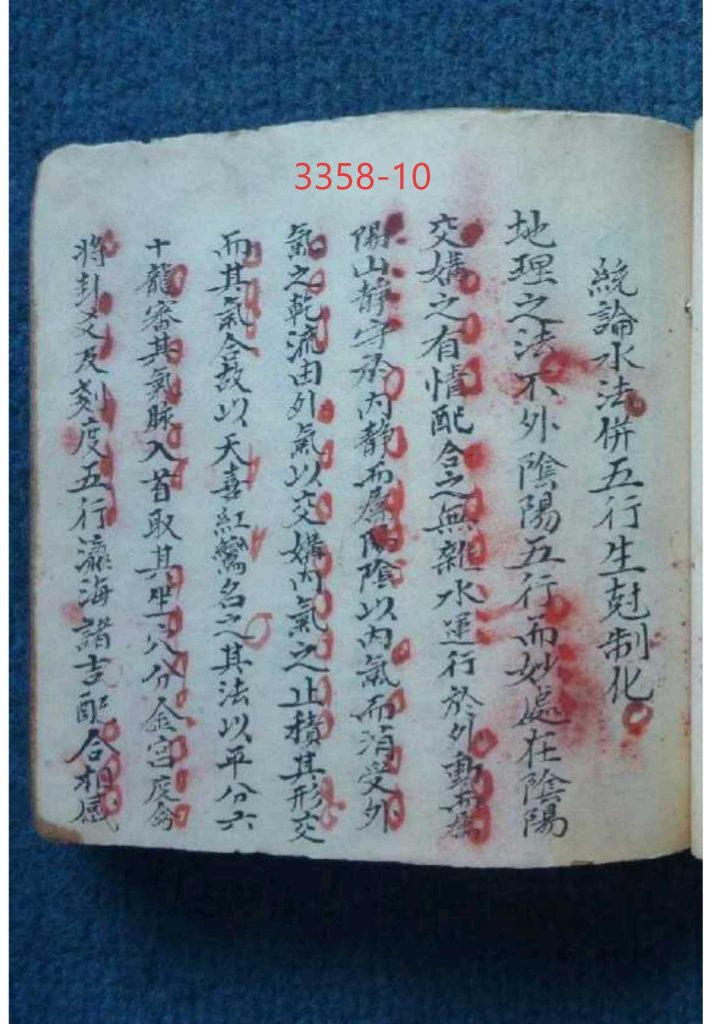 3358-10
統論水法併五行生尅制化
地理之法不外陰陽五行而妙處在陰陽
交媾之有情配合之無雜水運行於外動而屬
陽山静守於内静而屬陰陰以内氣而消受外
氣之乾流由外氣以交媾内氣之止積其形交
而其氣合故以天喜紅鸞名之其法以平分六
十龍審其氣脉入首取其坐穴分金宮度
將卦爻及刻度五行瀛海諸吉配合相感